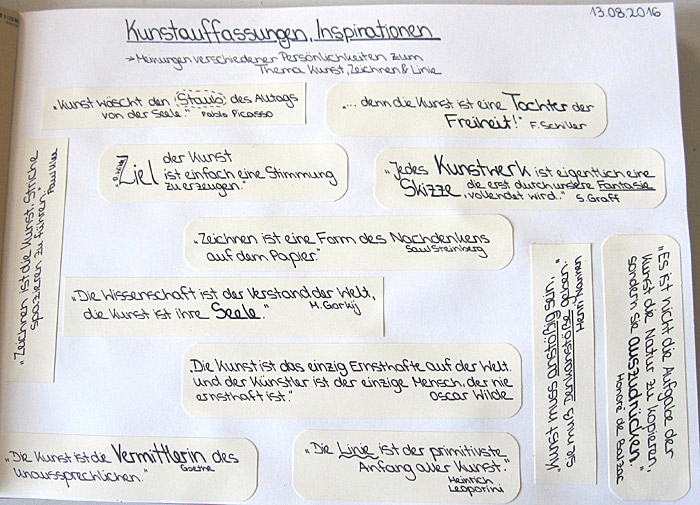 13.08.2016
Kunstauffassungen, Inspirationen
→ Meinungen verschiedener Persönlichkeiten zum
Thema Kunst, Zeichnen & Linie
„Kunst wäscht den Staub des Alltags
von der Seele." Pablo Picasso
„... denn die Kunst ist eine Tochter der
Freiheit!" F. Schiller
„Ziel der Kunst
ist einfach eine Stimmung
zu erzeugen."
„Jedes Kunstwerk ist eigentlich eine
Skizze, die erst durch unsere Fantasie
vollendet wird." S. Graff
„Zeichnen ist die Kunst, Striche
spazieren zu führen." Paul Klee
„Zeichnen ist eine Form des Nachdenkens
auf dem Papier." Saul Steinberg
„Die Wissenschaft ist der Verstand der Welt,
die Kunst ist ihre Seele." M. Gorkij
„Die Kunst ist das einzig Ernsthafte auf der Welt.
und der Künstler ist der einzige Mensch, der nie
ernsthaft ist." Oscar Wilde
Kunst muss anstößig sein,
sie muß Denkanstöße geben."
Henri
„Es ist nicht die Aufgabe der
Kunst die Natur zu kopieren,
sondern sie auszudrücken."
Honoré de Balzac
„Die Kunst ist die Vermittlerin des
unaussprechlichen." Goethe
„Die Linie ist der primitivste
Anfang aller Kunst."
Heinrich
Leoporini